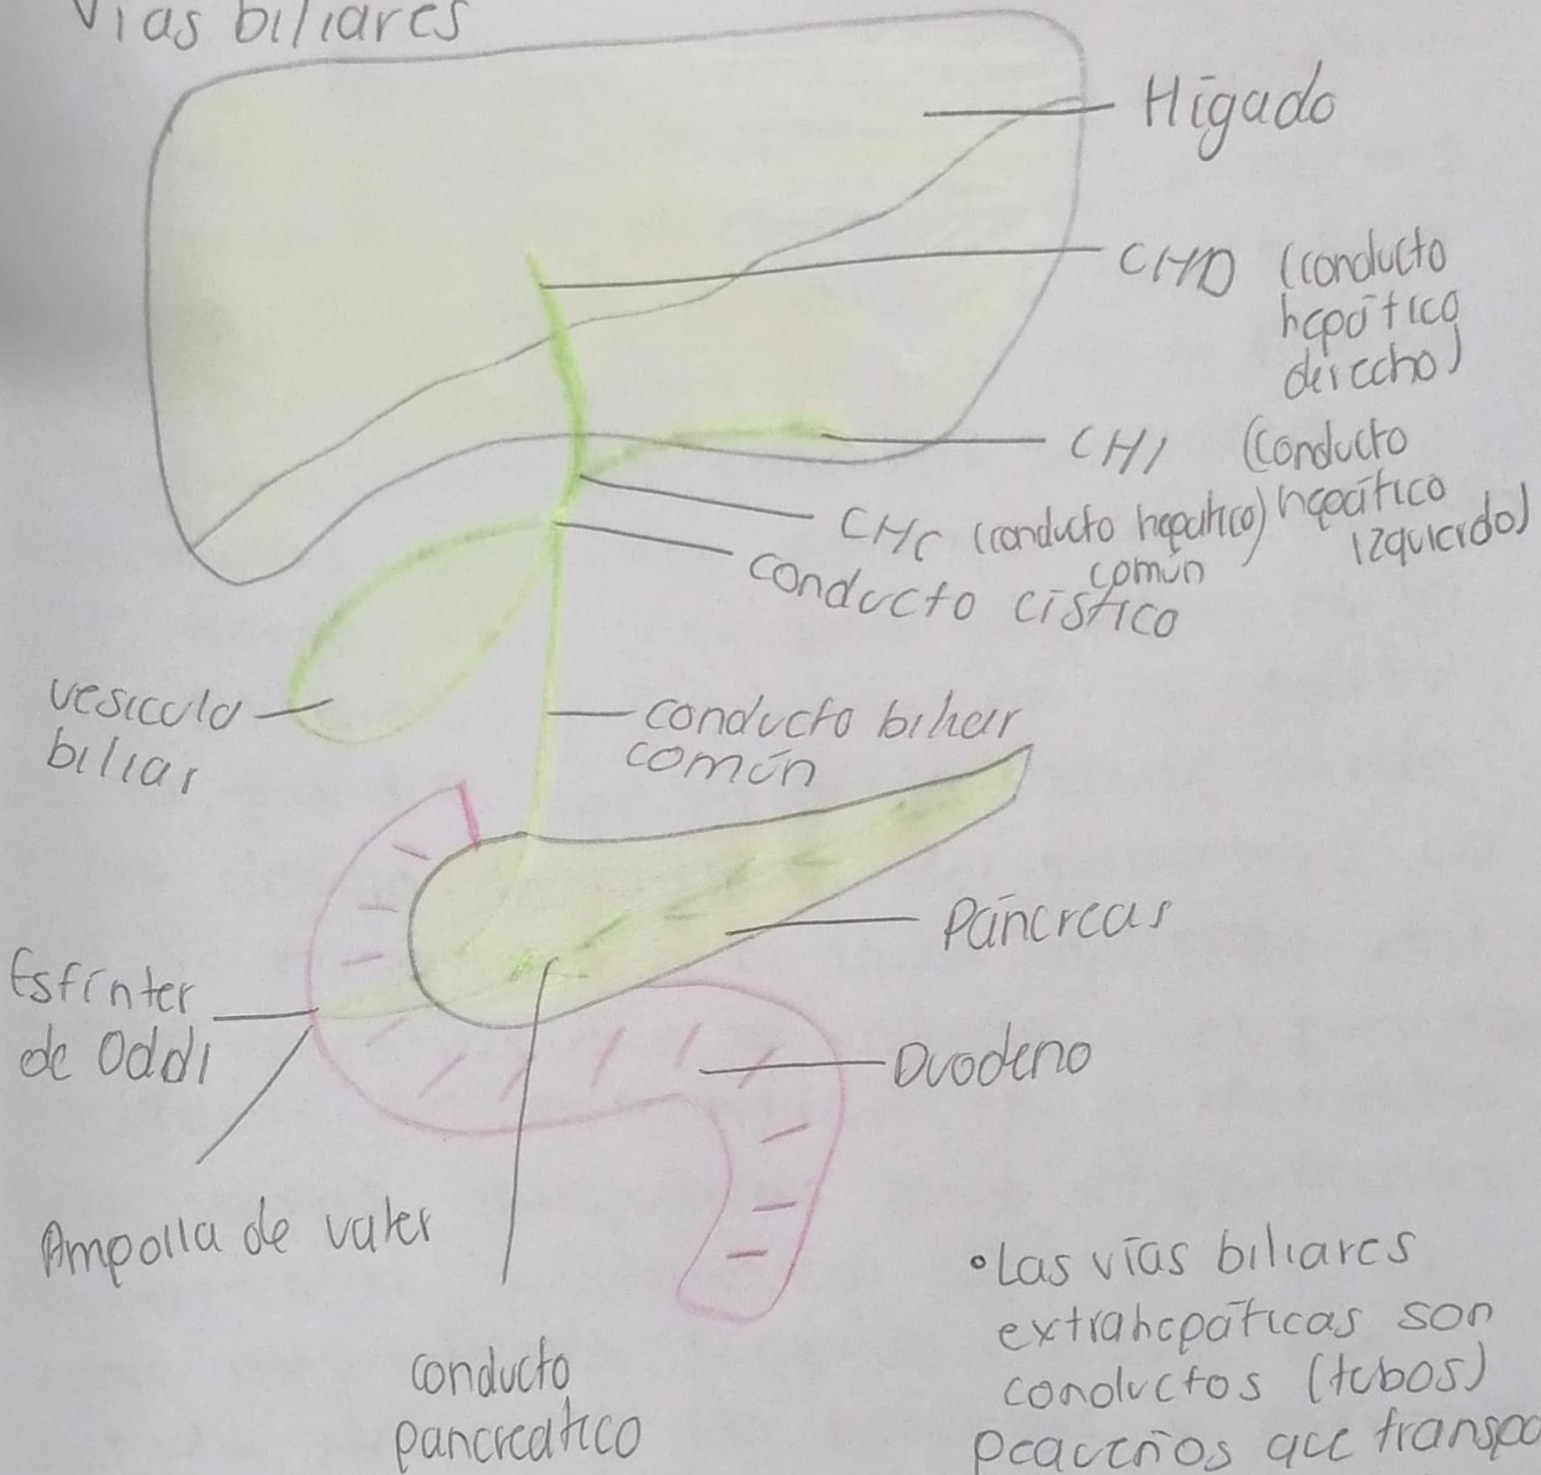 Vías biliares
Hígado
CHD (conducto
hepático
derecho)
CHI (conducto
hepático
izquierdo)
CHC (conducto hepático)
común
conducto cístico
vesícula
biliar
conducto biliar
común
Páncreas
Esfínter
de Oddi
Duodeno
Ampolla de vater
conducto
pancreático
•Las vías biliares
extrahepáticas son
conductos (tubos)
pequeños que transpo